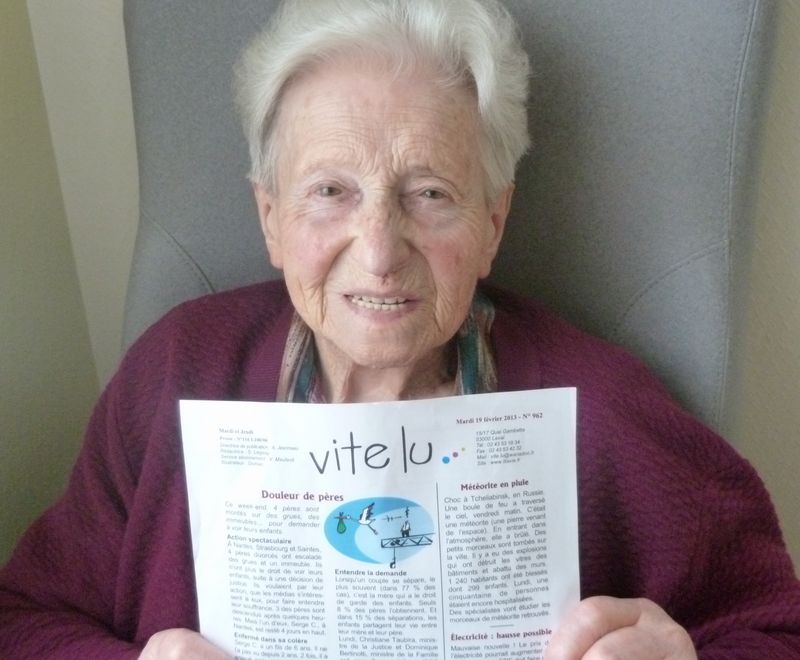 Mardi et Jeudi
Directrice de publication : A. Jeanneau
Mardi 19 février 2013 - N° 962
15/17 Quai Gambetta
53000 Laval
Tél : 02 43 53 18 34
vite lu
Douleur de pères
Ce week-end, 4 pères sont
montés sur des grues, des
immeubles... pour demander
à voir leurs enfants.
Action spectaculaire
À Nantes, Strasbourg et Saintes,
4 pères divorcés ont escaladé
des grues et un immeuble. Ils
n'ont plus le droit de voir leurs
enfants, suite à une décision de
justice. Ils voulaient par leur
action, que les médias s'intéres-
sent à eux, pour faire entendre
leur souffrance. 3 des pères sont
descendus après quelques heu-
res. Mais l'un d'eux, Serge C., à
Nantes, est resté 4 jours en haut.
Enfermé dans sa colère
Serge C. a un fils de 6 ans. Il ne
l'a pas vu depuis 2 ans.
Entendre la demande
Lorsqu'un couple se sépare, le
plus souvent (dans 77 % des
cas), c'est la mère qui a le droit
de garde des enfants. Seuls
8 % des pères l'obtiennent. Et
dans 15 % des séparations, les
enfants partagent leur vie entre
leur mère et leur père.
Lundi, Christiane Taubira, minis-
tre de la Justice et Dominique
Bertinotti, ministre de la Famille
Météorite en pluie
Choc à Tcheliabinsk, en Russie.
Une boule de feu a traversé
le ciel, vendredi matin. C'était
une météorite (une pierre venant
de l'espace). En entrant dans
l'atmosphère, elle a brûlé. Des
petits morceaux sont tombés sur
la ville. Il y a eu des explosions
qui ont détruit les vitres des
bâtiments et abattu des murs.
1 240 habitants ont été blessés
dont 299 enfants. Lundi, une
cinquantaine de personnes
étaient encore hospitalisées.
Des spécialistes vont étudier les
morceaux de météorite retrouvés.
Électricité : hausse possible
Mauvaise nouvelle ! Le prix de
l'électricité pourrait augmenter